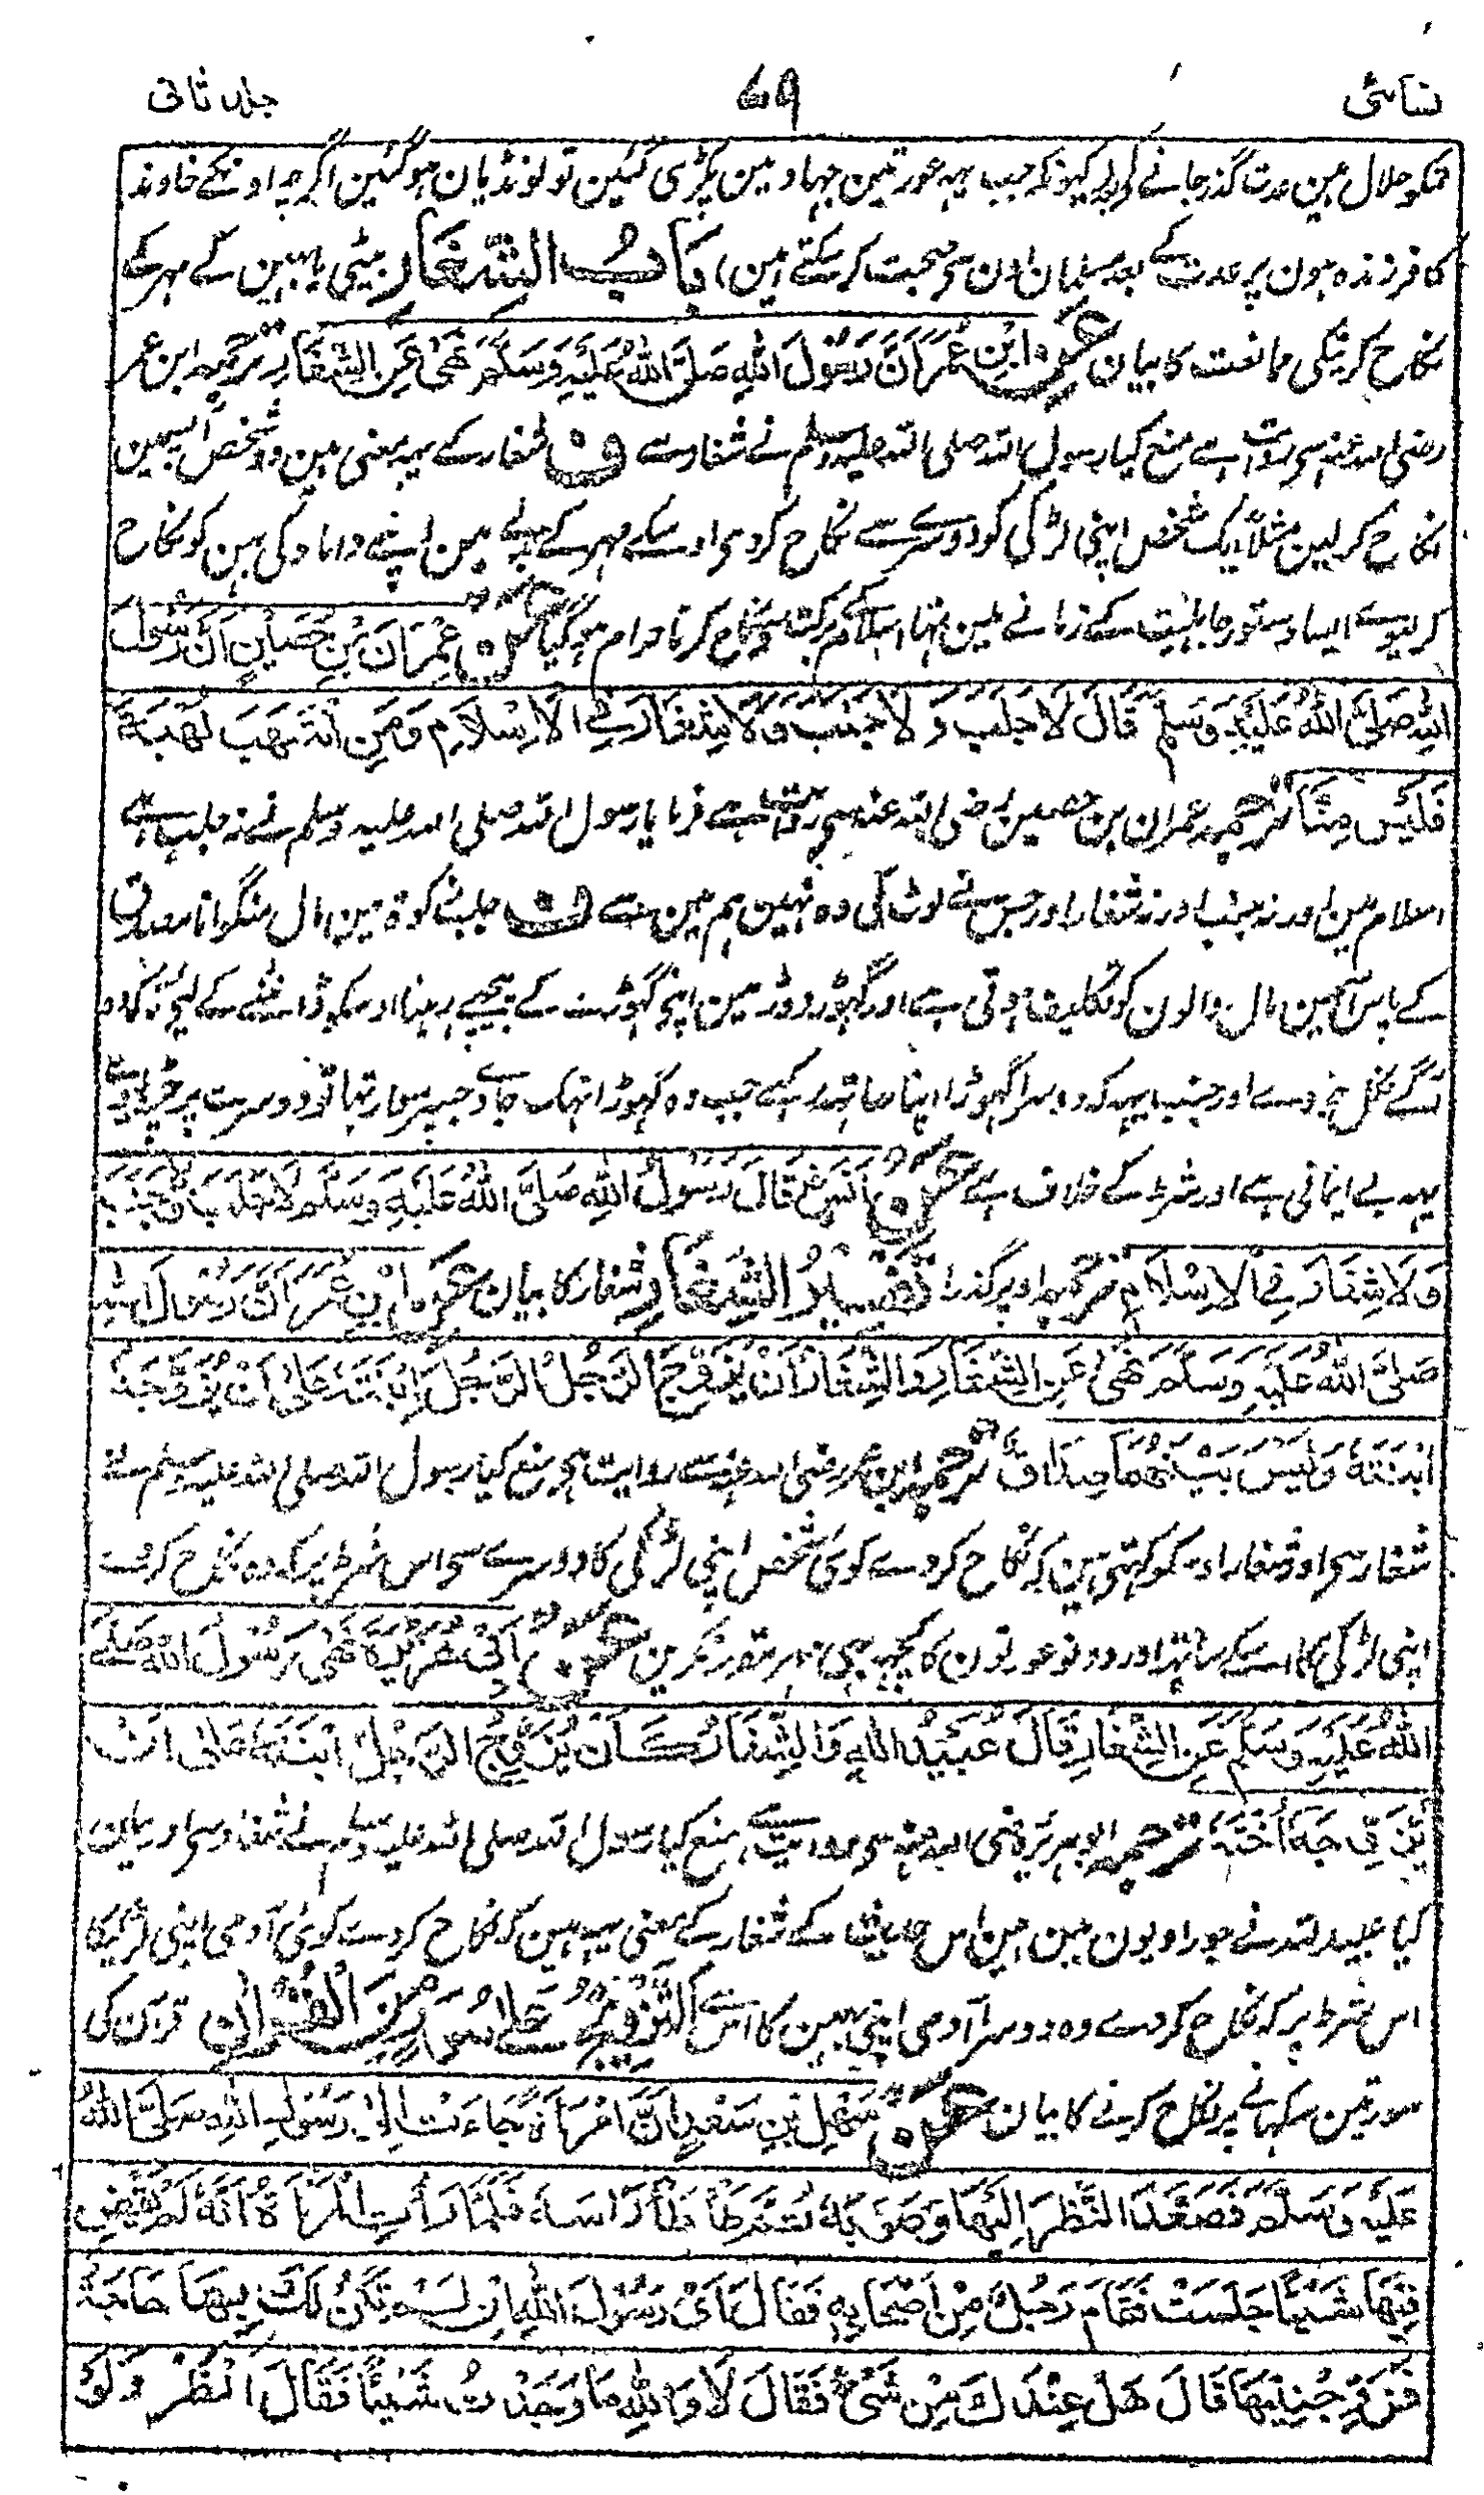 نسائی ۶۹ جلد ثانی
تمکو حلال ہین عدت گذر جانے کے بعد کیونکہ جب یہہ عورتین جہاد مین پکڑی گئین تو لونڈیان ہوگئین اگرچہ اونکے خاوند
کافر زندہ ہون پر عدت کے بعد مسلمان اون سے صحبت کرسکتے ہین) بَابُ الشِّغَارِ بیٹی یا بہین کے مہر کے
نکاح کرنیکی ممانعت کا بیان عَنِ ابْنِ عُمَرَ اَنَّ رَسُوْلَ اللّٰهِ صَلَّى اللّٰهُ عَلَيْهِ وَسَلَّمَ نَهٰى عَنِ الشِّغَارِ ترجمہ ابن عمر
رضی اللہ عنہ سی روایت ہے منع کیا رسول اللہ صلی اللہ علیہ وسلم نے شغار سے ف شغار کے یہہ معنی ہین دو شخص آپسمین
نکاح کرلین مثلاً ایک شخص اپنی لڑکی کو دوسرے سے نکاح کردی اور اوسکے مہر کے بدلے مین اپنے داماد کی بہن کو نکاح
کرلیوے ایسا دستور جاہلیت کے زمانے مین تہا اسلام مین ایسا نکاح کرنا حرام ہوگیا عَنْ عِمْرَانَ بْنِ حُصَيْنٍ اَنَّ رَسُوْلَ
اللّٰهِ صَلَّى اللّٰهُ عَلَيْهِ وَسَلَّمَ قَالَ لَا جَلَبَ وَ لَا جَنَبَ وَلَا شِغَارَ فِي الْاِسْلَامِ وَمَنِ انْتَهَبَ نُهْبَةً
فَلَيْسَ مِنَّا ترجمہ عمران بن حصین رضی اللہ عنہ سی روایت ہے فرمایا رسول اللہ صلی اللہ علیہ وسلم نے نہ جلب ہے
اسلام مین اور نہ جنب اور نہ شغار اور جس نے لوٹ کی وہ نہین ہم مین سے ف جلب زکوة مین مال منگوانا مصدق
کے پاس اسمین مال والون کو تکلیف ہوتی ہے اور گہوڑ دوڑ مین اپنے گہوڑے کے پیچہے رہنا اوسکو ڈانٹنے کے لیے تاکہ وہ
آگے نکل جاوے اور جنب یہہ کہ دوسرا گہوڑا اپنا ساتہہ رکہے جب وہ گہوڑا تہک جاوے جسپر سوار تہا تو دوسرے پر چڑہ جاوے
یہہ بے ایمانی ہے اور شرط کے خلاف ہے عَنْ اَنَسٍ قَالَ رَسُوْلُ اللّٰهِ صَلَّى اللّٰهُ عَلَيْهِ وَسَلَّمَ لَا جَلَبَ وَلَا جَنَبَ
وَلَا شِغَارَ فِي الْاِسْلَامِ ترجمہ اوپر گذرا تَفْسِيْرُ الشِّغَارِ شغار کا بیان عَنِ ابْنِ عُمَرَ اَنَّ رَسُوْلَ اللّٰهِ
صَلَّى اللّٰهُ عَلَيْهِ وَسَلَّمَ نَهٰى عَنِ الشِّغَارِ وَالشِّغَارُ اَنْ يُزَوِّجَ الرَّجُلُ الرَّجُلَ ابْنَتَهُ عَلٰى اَنْ يُزَوِّجَهُ
ابْنَتَهُ وَلَيْسَ بَيْنَهُمَا صَدَاقٌ ترجمہ ابن عمر رضی اللہ عنہ سے روایت ہی منع کیا رسول اللہ صلی اللہ علیہ وسلم نے
شغار سی اور شغار اوسکو کہتی ہین کہ نکاح کردے کوئی شخص اپنی لڑکی کا دوسرے سی اس شرط پر کہ وہ نکاح کردے
اپنی لڑکی کا اسکے ساتہہ اور دونو عورتون کا کچہہ بہی مہر مقرر نکرین عَنْ اَبِيْ هُرَيْرَةَ نَهٰى رَسُوْلُ اللّٰهِ صَلَّى
اللّٰهُ عَلَيْهِ وَسَلَّمَ عَنِ الشِّغَارِ قَالَ عُبَيْدُ اللّٰهِ وَالشِّغَارُ كَانَ يُزَوِّجُ الرَّجُلُ ابْنَتَهُ عَلٰى اَنْ
يُزَوِّجَهُ اُخْتَهُ ترجمہ ابو ہریرہ رضی اللہ عنہ سی روایت ہے منع کیا رسول اللہ صلی اللہ علیہ وسلم نے شغار سی اور بیان
کیا عبید اللہ نے جو راویون مین ہین اس حدیث کے شغار کے معنی یہہ ہین کہ نکاح کردے کوئی آدمی اپنی لڑکیکا
اس شرط پر کہ نکاح کردے وہ دوسرا آدمی اپنی بہین کا اس سے اَلتَّزْوِيْجُ عَلٰى سُوَرٍ مِّنَ الْقُرْاٰنِ قرآن کی
سورتین سکہانے پر نکاح کرنے کا بیان عَنْ سَهْلِ بْنِ سَعْدٍ اَنَّ امْرَاَةً جَاءَتْ اِلٰى رَسُوْلِ اللّٰهِ صَلَّى اللّٰهُ
عَلَيْهِ وَسَلَّمَ فَصَعَّدَ النَّظَرَ اِلَيْهَا وَصَوَّبَهُ ثُمَّ طَأْطَأَ رَاْسَهُ فَلَمَّا رَأَتِ الْمَرْاَةُ اَنَّهُ لَمْ يَقْضِ
فِيْهَا شَيْئًا جَلَسَتْ فَقَامَ رَجُلٌ مِنْ اَصْحَابِهِ فَقَالَ اَىْ رَسُوْلَ اللّٰهِ اِنْ لَمْ تَكُنْ لَكَ بِهَا حَاجَةٌ
فَزَوِّجْنِيْهَا قَالَ هَلْ عِنْدَكَ مِنْ شَيْءٍ فَقَالَ لَا وَاللّٰهِ مَا وَجَدْتُ شَيْئًا فَقَالَ انْظُرْ وَلَوْ